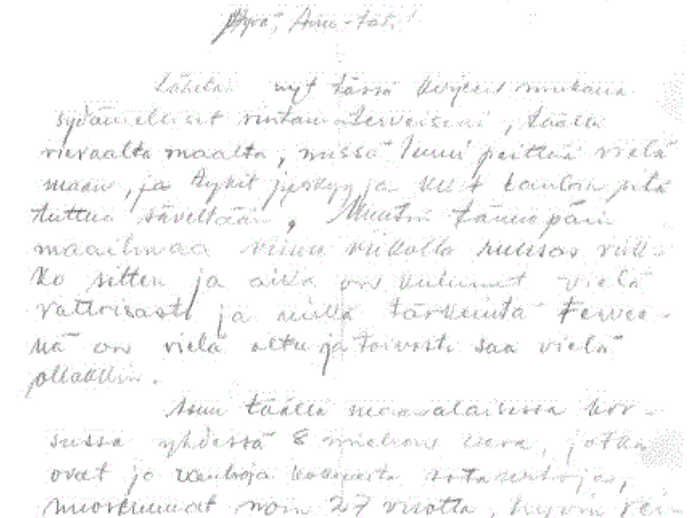 Hyvä, Anu-täti!
Lähetän nyt tässä kirjeeni mukana
sydämelliset rintamaterveiseni, täältä
vieraalta maalta, missä lumi peittää vielä
maan, ja tykit jyskyy ja
tuttua säveltään, Muutin tännepäin
maailmaa viime viikolla
ko sitten ja aika on kulunut vielä
rattoisasti ja mikä tärkeintä tervee-
nä on vielä oltu ja toivosti saa vielä
ollakkin.
Asun täällä maanalaisessa kor-
sussa yhdessä 8 miehen kera, jotka
ovat jo vanhoja kokeneita
nuoremmat noin 27 vuotta, hyvin